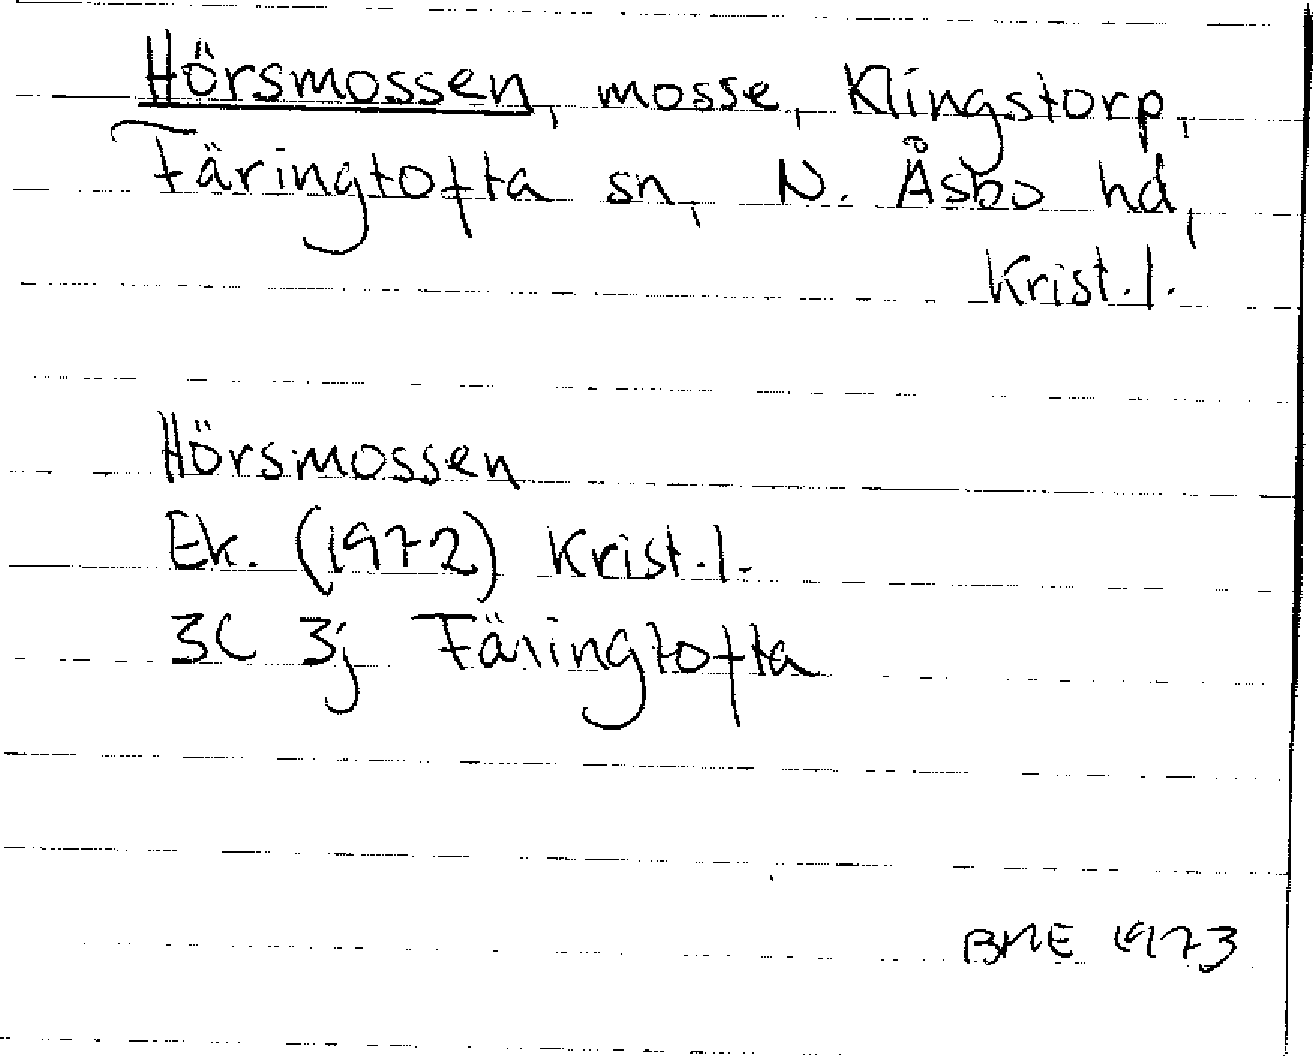 Hörsmossen, mosse, Klingstorp,
Färingtofta sn, N. Åsbo hd,
Krist. l.
Hörsmossen
Ek. (1972) Krist. l.
3C 3j Färingtofta
BME 1973